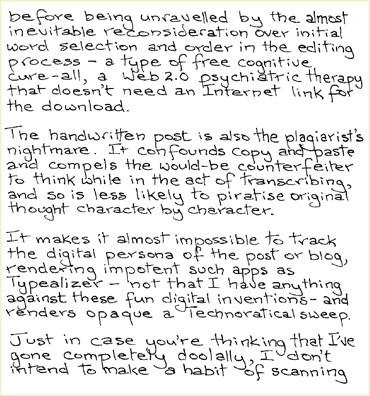 before being unravelled by the almost
inevitable reconsideration over initial
word selection and order in the editing
process - a type of free cognitive
cure-all, a Web 2.0 psychiatric therapy
that doesn't need an Internet link for
the download.
The handwritten post is also the plagiarist's
nightmare. It confounds copy and paste
and compels the would-be counterfeiter
to think while in the act of transcribing,
and so is less likely to piratise original
thought character by character.
It makes it almost impossible to track
the digital persona of the post or blog,
rendering impotent such apps as
Typealizer - not that I have anything
against these fun digital inventions - and
renders opaque a Technoratical sweep.
Just in case you're thinking that I've
gone completely doolally, I don't
intend to make a habit of scanning